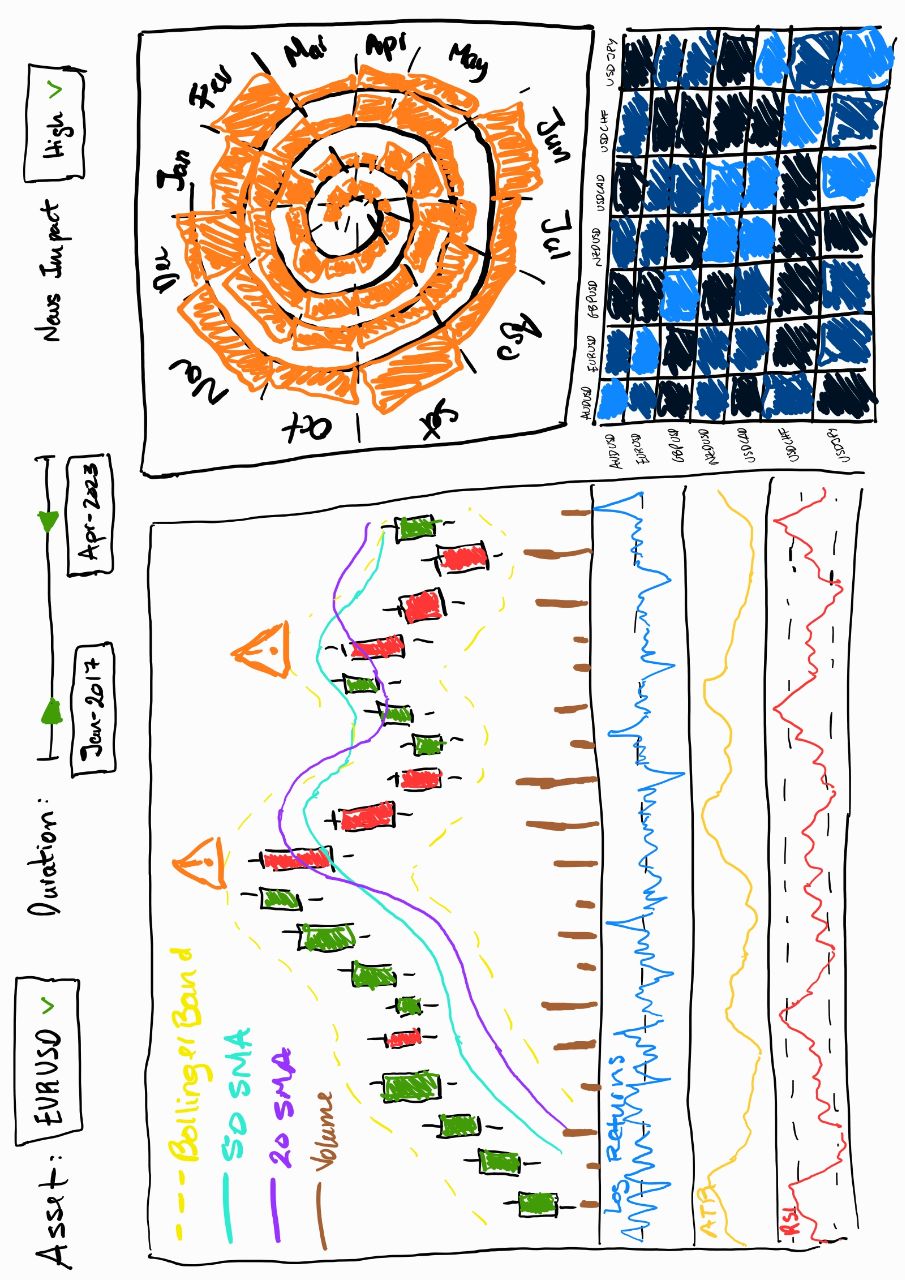 Asset:
EURUSD
Duration:
Jan-2017
Apr-2023
News Impact
High
Bollinger Band
50 SMA
20 SMA
Volume
Log Returns
ATR
RSI
Dec
Jan
Fev
Mai
Apr
May
Jun
Jul
Oct
Nov
AUDUSD EURUSD GBPUSD NZDUSD USDCAD USDCHF USDJPY
AUDUSD
EURUSD
GBPUSD
NZDUSD
USDCAD
USDCHF
USDJPY